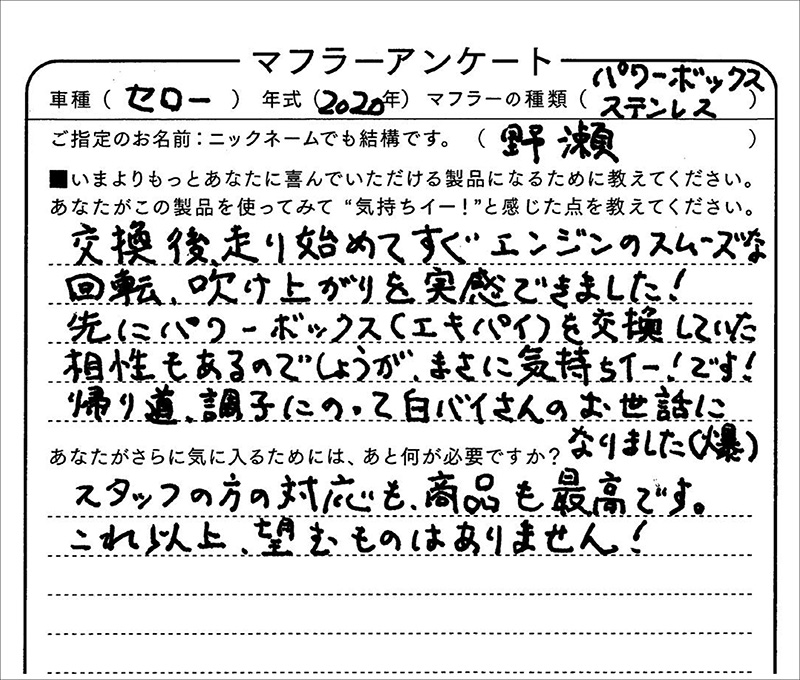 マフラーアンケート
車種（ セロー ） 年式（2020年） マフラーの種類（ パワーボックス ステンレス ）
ご指定のお名前：ニックネームでも結構です。（ 野瀬 ）
■いまよりもっとあなたに喜んでいただける製品になるために教えてください。
あなたがこの製品を使ってみて“気持ちイー！”と感じた点を教えてください。
交換後、走り始めてすぐエンジンのスムーズな
回転、吹け上がりを実感できました！
先にパワーボックス（エキパイ）を交換していた
相性もあるのでしょうが、まさに気持ちイー！です！
帰り道、調子にのって白バイさんのお世話に
なりました（爆）
あなたがさらに気に入るためには、あと何が必要ですか？
スタッフの方の対応も、商品も最高です。
これ以上、望むものはありません！